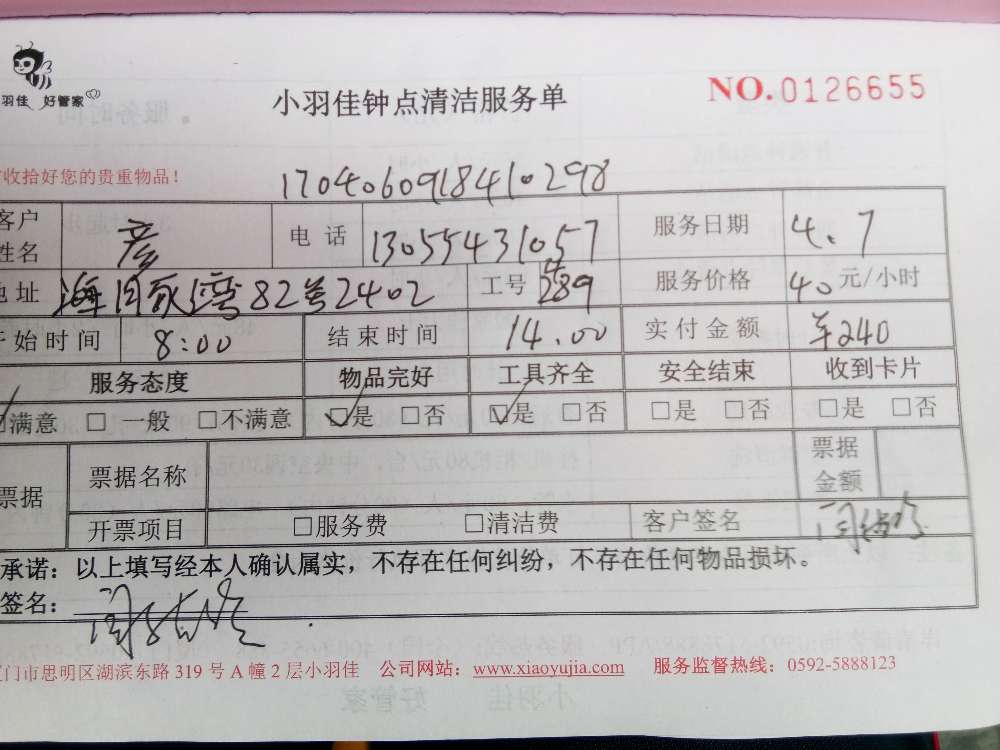 羽佳 好管家
小羽佳钟点清洁服务单
NO.0126655
收拾好您的贵重物品！
1704060918410298
客户姓名 彦 电话 13055431057 服务日期 4.7
地址 82号2402 工号 289 服务价格 40元/小时
开始时间 8:00 结束时间 14.00 实付金额 ￥240
服务态度 物品完好 工具齐全 安全结束 收到卡片
满意 □ 一般 □不满意 ☑是 □否 ☑是 □否 □是 □否 □是 □否
票据 票据名称 票据金额
开票项目 □服务费 □清洁费 客户签名
承诺：以上填写经本人确认属实，不存在任何纠纷，不存在任何物品损坏。
签名：
门市思明区湖滨东路 319 号 A 幢 2 层小羽佳 公司网站：www.xiaoyujia.com 服务监督热线：0592-5888123